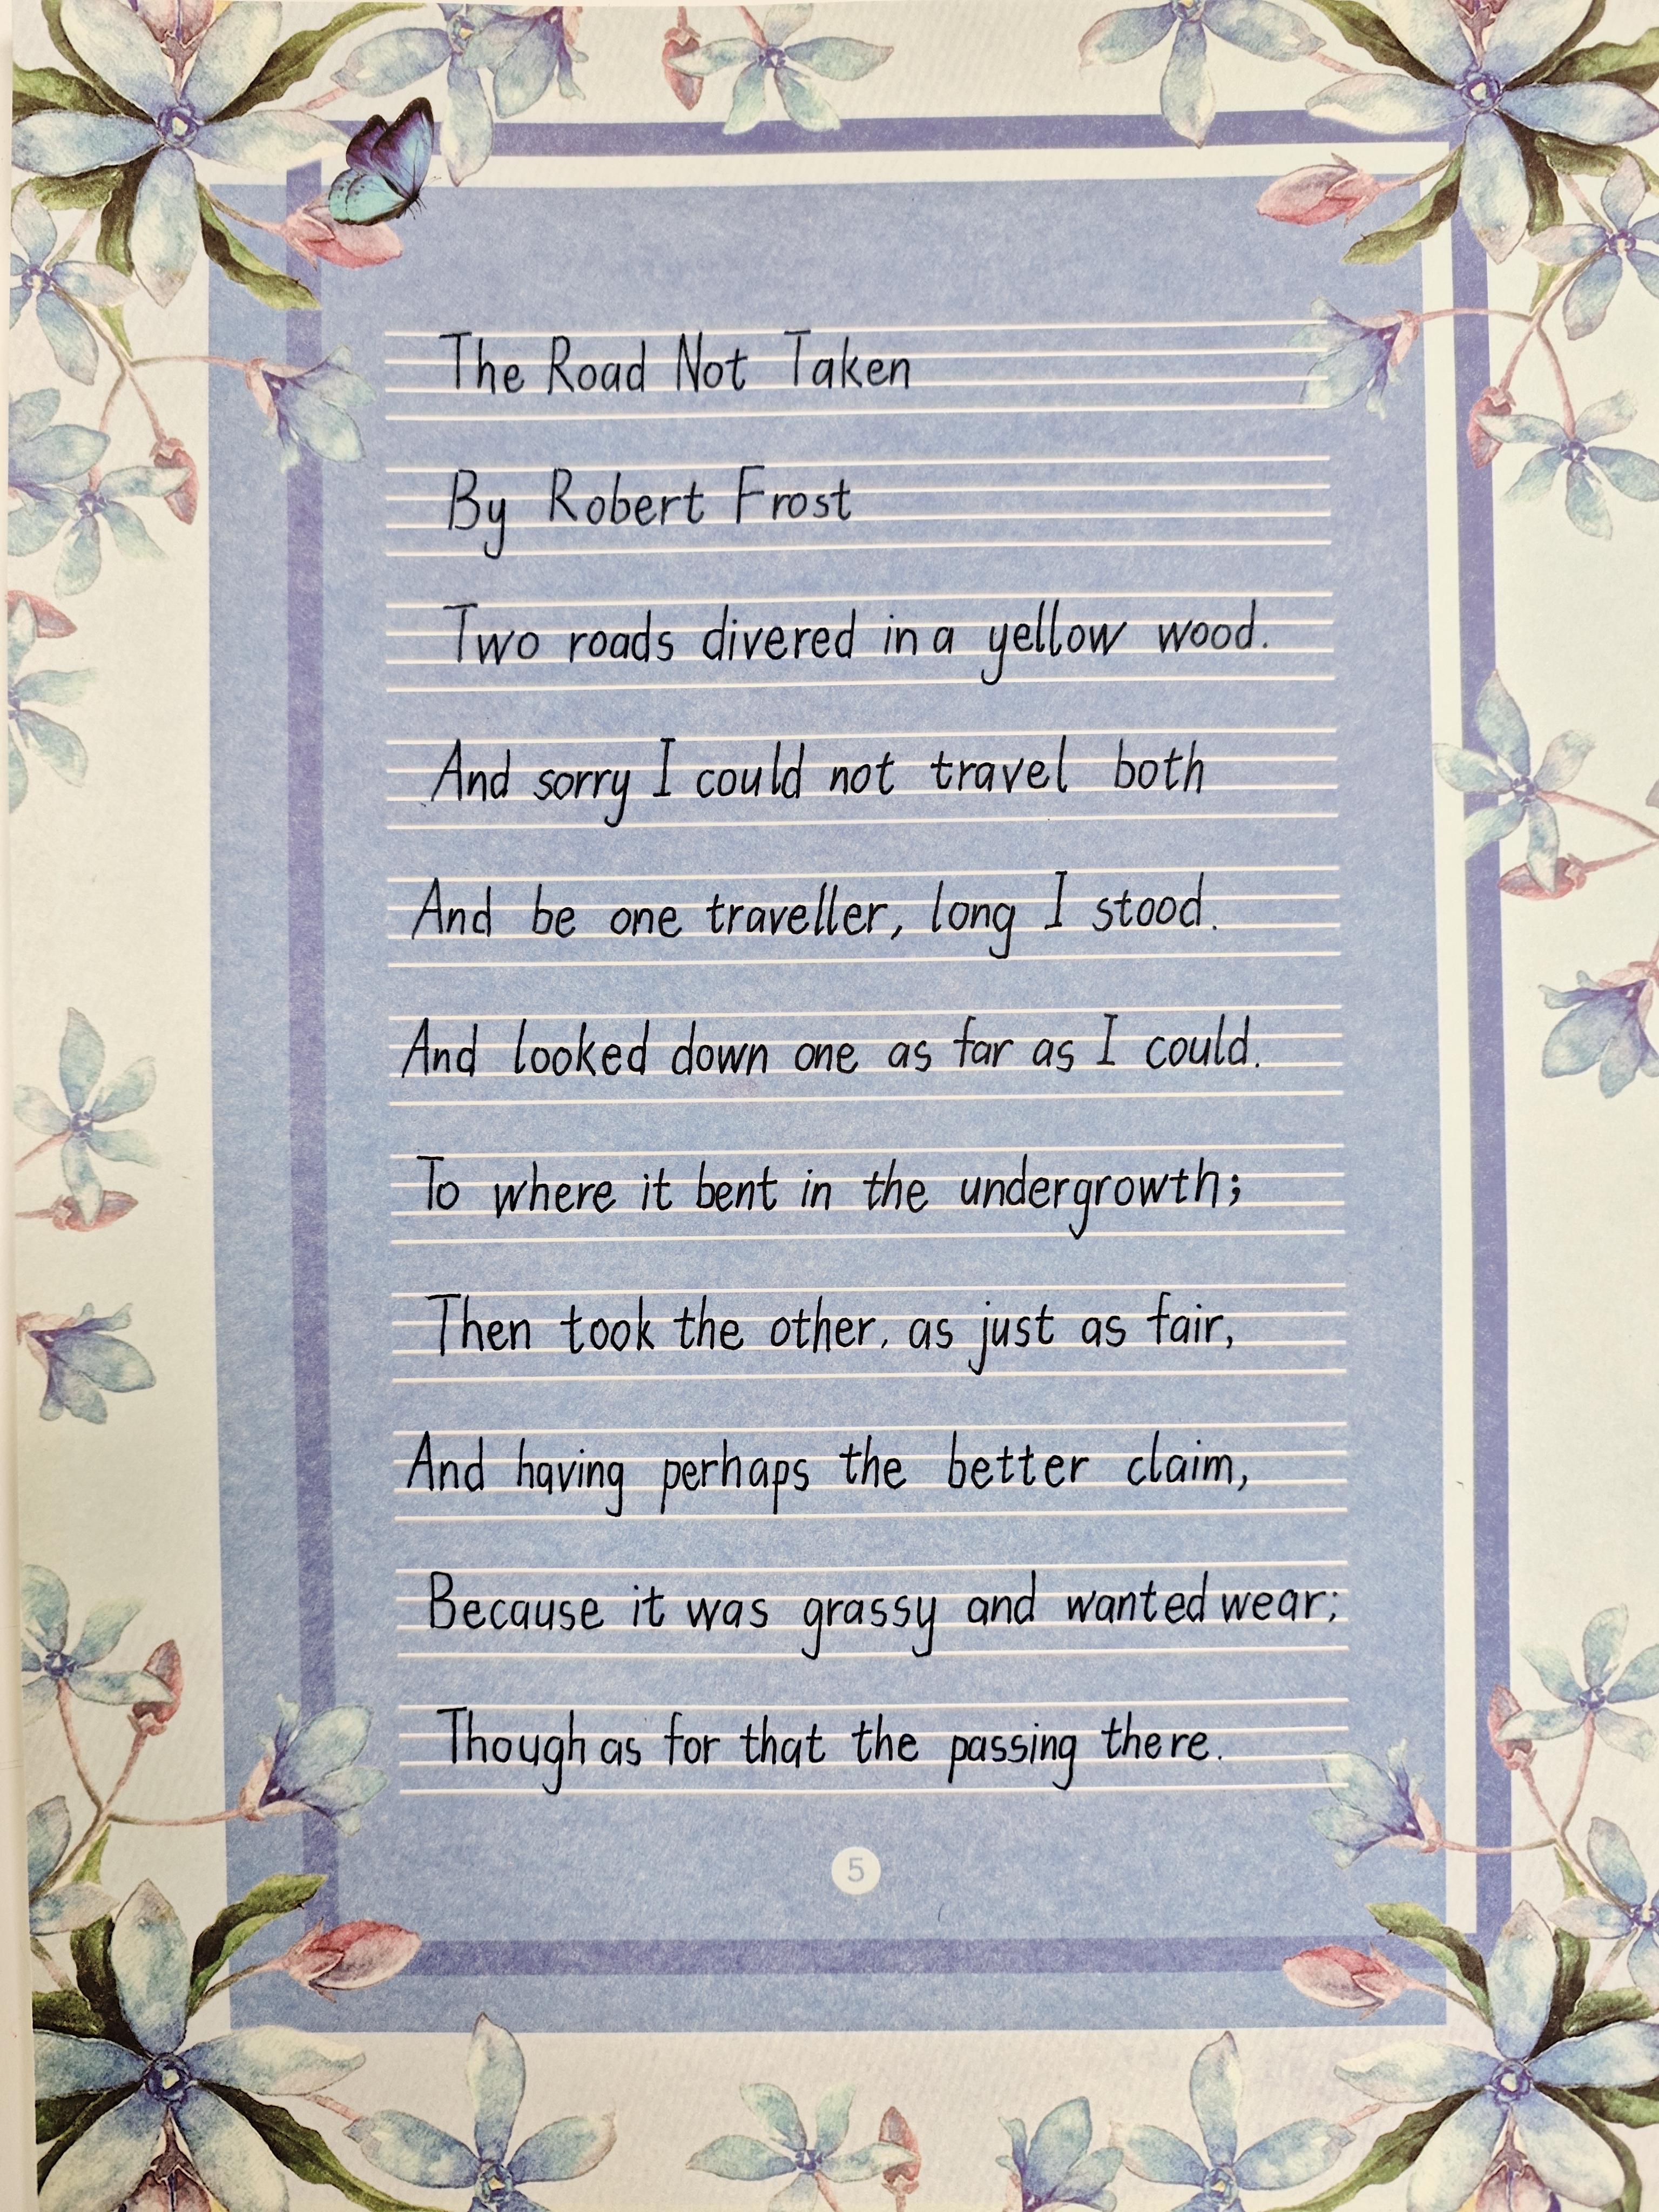 The Road Not Taken
By Robert Frost
Two roads divered in a yellow wood.
And sorry I could not travel both
And be one traveller, long I stood.
And looked down one as far as I could.
To where it bent in the undergrowth;
Then took the other, as just as fair,
And having perhaps the better claim,
Because it was grassy and wanted wear;
Though as for that the passing there.
5